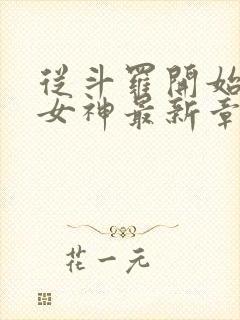 從斗羅開始
女神最新章
花一元